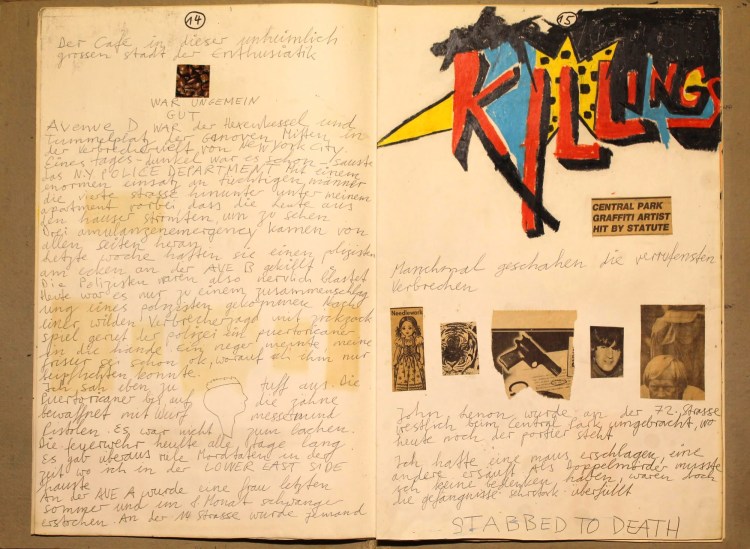 14
Der Cafe in dieser unheimlich
grossen stadt der Enthusiastik
WAR UNGEMEIN
GUT
AVENUE D WAR der Hexenkessel und
Tummelplatz der Ganoven Mitten in
der Verbrecherwelt von New York City.
Eines tages - dunkel war es schon - sauste
das N.Y. POLICE DEPARTMENT mit einem
enormen einsatz an tüchtigen männer
die vierte strasse hinunter unter meinem
apartment vorbei, dass die heute aus
den häuser stürmten, um zu sehen
Drei amulanzenemergency kamen von
allen seiten heran
Letzte woche hatten sie einen polizisten
am ecken an der AVE B gekillt.
Die Polizisten waren also nervlich
Heute war es nur zu einem zusammenschlag
ung eines polizisten gekommen. Nach
einer wilden Verbrecherjagd mit
spiel geriet der polizei ein puertoricaner
in die hände. ein neger meinte meine
frisur sei schon ok, worauf ich ihm nur
beipflichten konnte.
Ich sah eben zu tuff aus. Die
Puertoricaner bis auf die zähne
bewaffnet mit Wurf messer und
Pistolen. Es war nicht zum lachen.
Die feuerwehr heulte alle tage lang
Es gab überaus rufe Mordtaten in der
zeit wo ich in der LOWER EAST SIDE
hauste
An der AVE A wurde eine frau letzten
sommer und im 8 Monat schwanger
erstochen. An der 14 Strasse wurde jemand
15
KILLINGS
CENTRAL PARK
GRAFFITI ARTIST
HIT BY STATUTE
Manchmal geschahen die verrufensten
Verbrechen
Needlework
John, lenon wurde an der 72. Strasse
westlich beim Central Park umgebracht, wo
heute noch der portier steht
Ich hatte eine maus erschlagen, eine
andere ersäuft. Als Doppelmörder musste
ich keine bedenken haben, waren doch
die gefängnisse sehr überfüllt
STABBED TO DEATH